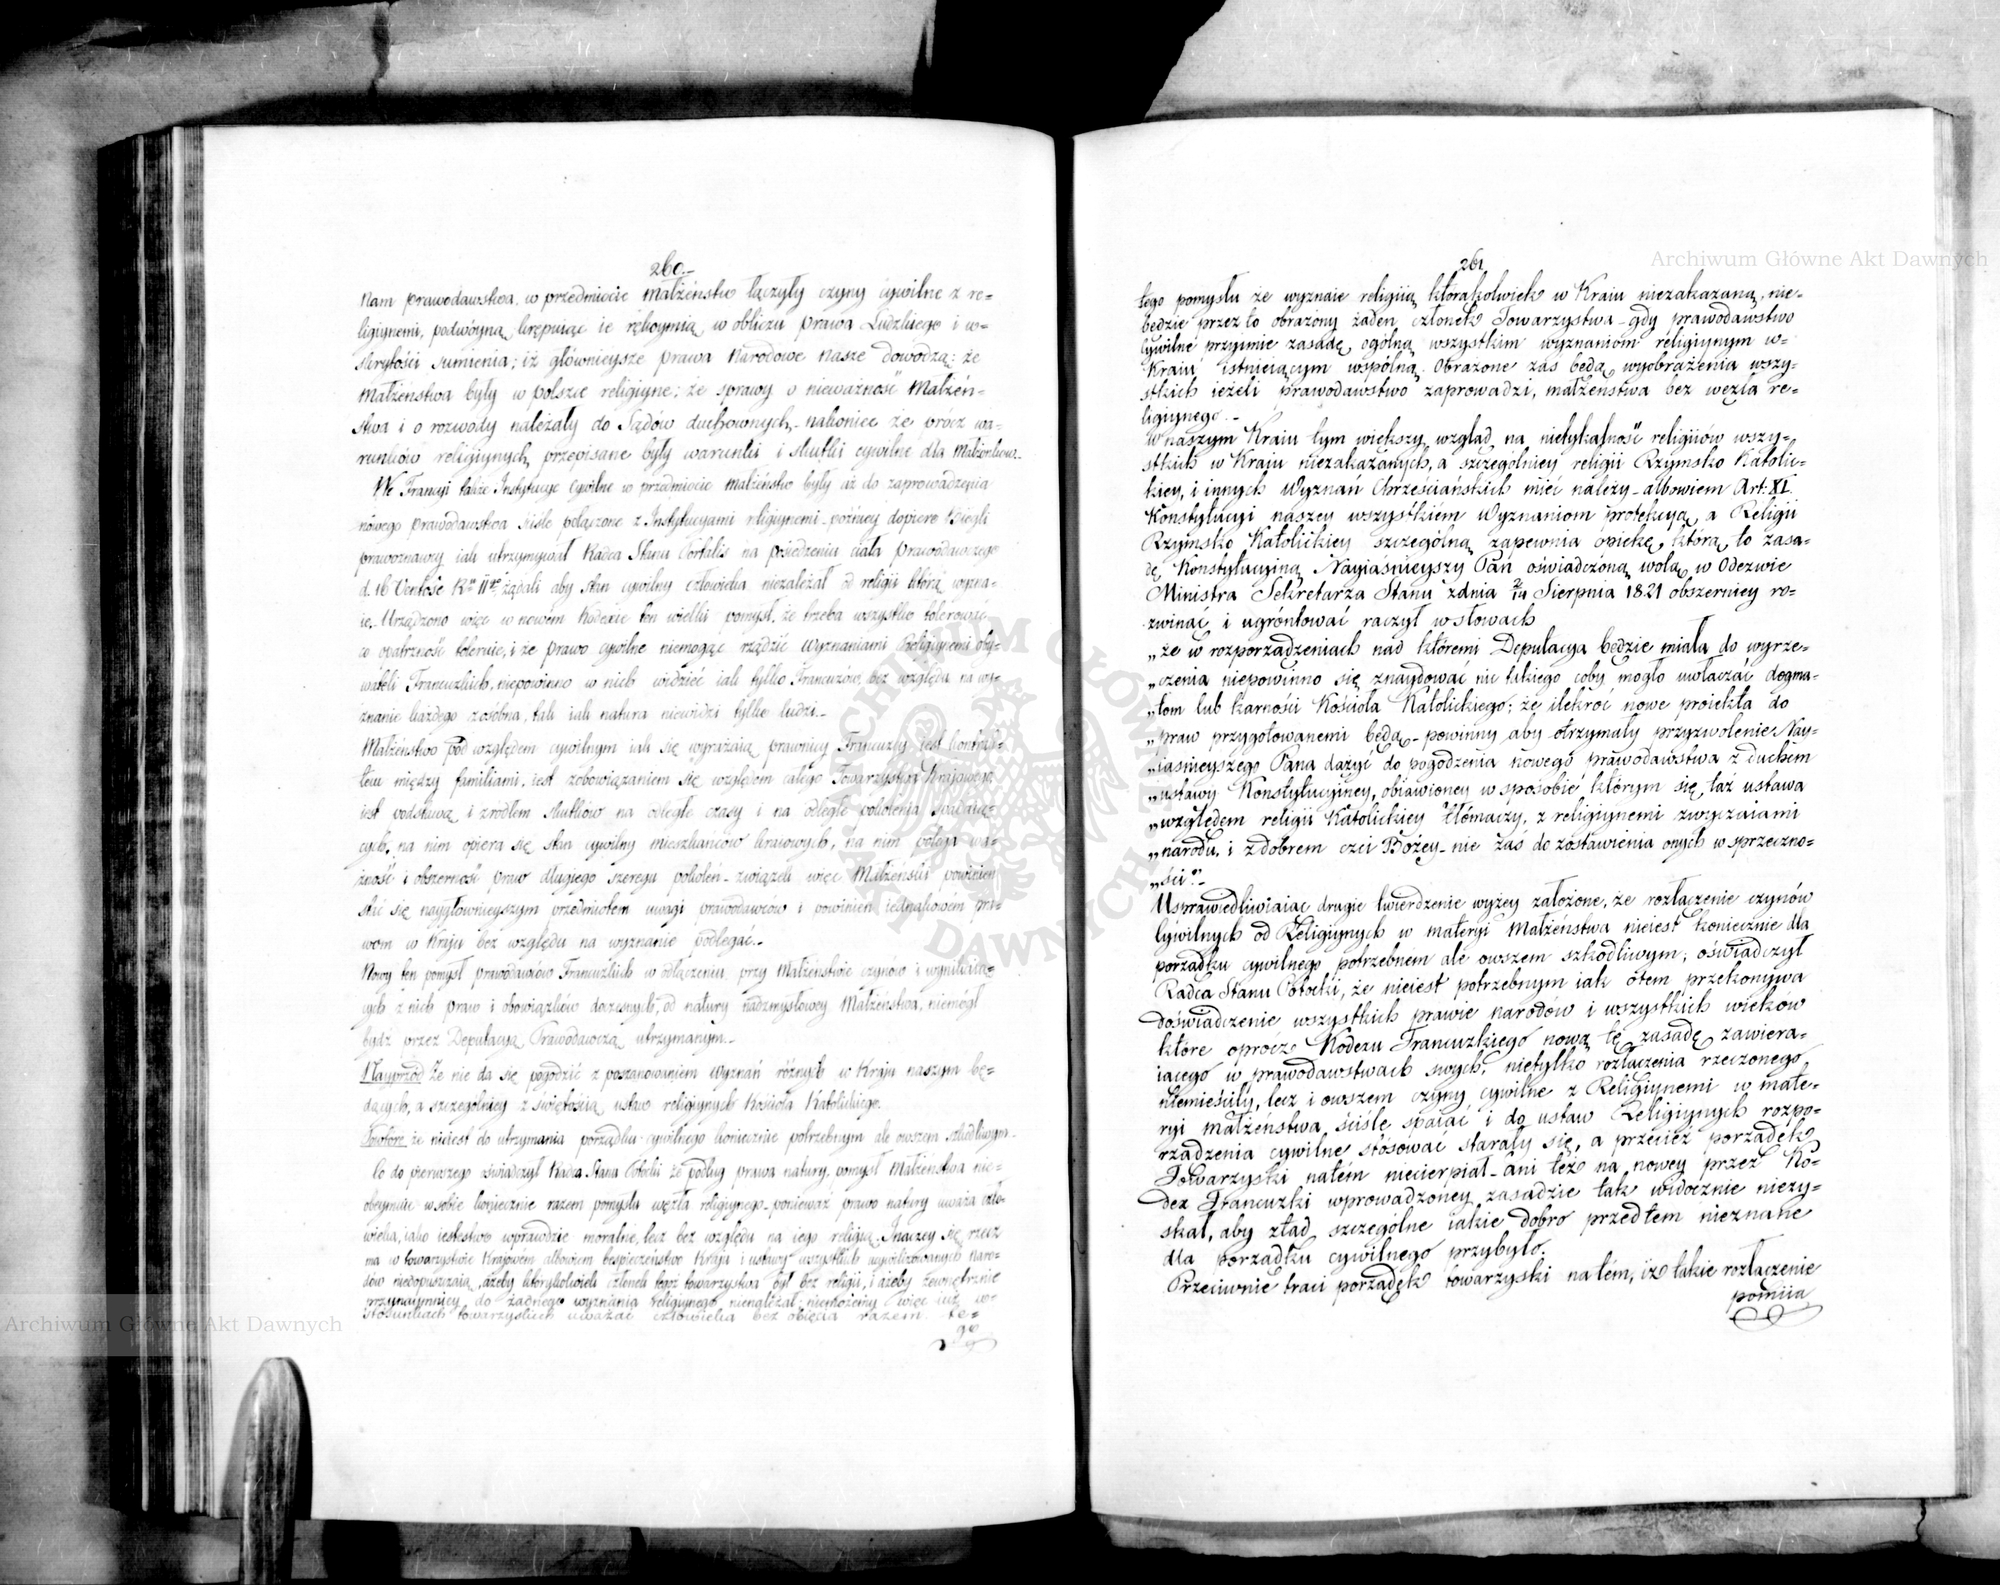 260.-
nam prawodawstwa, w przedmiocie Małżeństw łączyły czyny cywilne z re-
ligiynemi, podwóyną krępuiąc ie rękoymią, w obliczu prawa Ludzkiego i w-
skrytości sumienia; iż głównieysze prawa Narodowe nasze dowodzą: że
Małżeństwa były w polsce religiyne; że sprawy o nieważność Małżeń-
stwa i o rozwody należały do Sądów duchownych,- nakoniec że prócz wa-
runków religiynych przepisane były warunki i skutki cywilne dla Małżonków.-
We Francyi także Instytucye Cywilne w przedmiocie Małżeństw były aż do zaprowadzenia
nowego prawodawstwa ściśle połączone z Instytucyami religiynemi - poźniey dopiero Biegli
prawoznawcy iak utrzymywał Radca Stanu Portalis na posiedzeniu ciała Prawodawczego
d. 16 Ventose Rku IIgo żądali aby stan cywilny człowieka niezależał od religii którą wyzna-
ie.- Urządzono więc w nowem Kodexie ten wielki pomysł, że trzeba wszystko tolerować
co opatrzność toleruie, i że prawo cywilne niemogąc rządzić Wyznaniami Religiynemi oby-
wateli Francuzkich, niepowinno w nich widzieć iak tylko Francuzów, bez względu na wy-
znanie każdego zosobna, tak iak natura niewidzi tylko ludzi.-
Małżeństwo pod względem cywilnym iak się wyrażaią prawnicy Francuzcy iest kontrak-
tem między familiami, iest zobowiązaniem się względem całego Towarzystwa Kraiowego
iest podstawą i źródłem skutków na odległe czasy i na odległe pokolenia spadaią-
cych, na nim opiera się stan cywilny mieszkańców kraiowych, na nim polega wa-
żność i obszerność praw długiego szeregu pokoleń - związek więc Małżeński powinien
stać się naygłównieyszym przedmiotem uwagi prawodawców i powinien iednakowem pra-
wom w Kraju bez względu na wyznanie podlegać.-
Nowy ten pomysł prawodawców Francuzkich w odłączeniu przy Małżeństwie czynów i wynikaią-
cych z nich praw i obowiązków doczesnych, od natury nadzmysłowey Małżeństwa, niemógł
bydź przez Deputacyą Prawodawczą utrzymanym.-
Nayprzód że nie da się pogodzić z poszanowaniem wyznań różnych w Kraju naszym bę-
dących, a szczególniey z świętością ustaw religiynych Kościoła Katolickiego.
Powtóre że nieiest do utrzymania porządku cywilnego koniecznie potrzebnym ale owszem szkodliwym.-
Co do pierwszego oświadczył Radca Stanu Potocki że podług prawa natury, pomysł Małżeństwa nie-
obeymuie w sobie koniecznie razem pomysłu węzła religiynego - ponieważ prawo natury uważa czło-
wieka, iako iestestwo wprawdzie moralne, lecz bez względu na iego religią. Inaczey się rzecz
ma w towarzystwie Kraiowém albowiem bezpieczeństwo Kraju i ustawy wszystkich ucywilizowanych naro-
dów niedopuszczaią, ażeby którykolwiek członek tegoż towarzystwa był bez religii, i ażeby zewnętrznie
przynaymniey do żadnego wyznania religiynego nienależał, niemożemy więc iuż w-
stosunkach towarzyskich uważać człowieka bez obięcia razem te-
go
261
tego pomysłu że wyznaie religiią którąkolwiek w Kraiu niezakazaną, nie-
będzie przez to obrażony żaden członek Towarzystwa - gdy prawodawstwo
Cywilne przyimie zasadę ogólną wszystkim wyznaniom religiynym w-
Kraiu istnieiącym wspólną. Obrażone zaś będą wyobrażenia wszy-
stkich ieżeli prawodawstwo zaprowadzi, małżeństwa bez węzła re-
ligiynego.-
W naszym Kraiu tym większy wzgląd na nietykalność religiiów wszy-
stkich w Kraiu niezakazanych, a szczególniey religii Rzymsko Katolic-
kiey, i innych Wyznań Chrześciańskich mieć należy - albowiem Art: XI.
Konstytucyi naszey wszystkiem Wyznaniom protekcyą, a Religii
Rzymsko Katolickiey szczególną zapewnia opiekę, którą to zasa-
dę Konstytucyiną Nayiaśnieyszy Pan oświadczoną wolą w Odezwie
Ministra Sekretarza Stanu zdnia 2/14 Sierpnia 1821 obszerniey ro-
zwinąć i ugróntować raczył w słowach
„że w rozporządzeniach nad któremi Deputacya będzie miała do wyrze-
„czenia niepowinno się znaydować nic takiego coby mogło uwłaczać dogma-
„tom lub karności Kościoła Katolickiego; że ilekroć nowe proiekta do
„praw przygotowanemi będą - powinny aby otrzymały przyzwolenie Nay-
„iaśnieyszego Pana dążyć do pogodzenia nowego prawodawstwa z duchem
„ustawy Konstytucyiney, obiawioney w sposobie którym się taż ustawa
„względem religii Katolickiey tłómaczy, z religiynemi zwyczaiami
„narodu, i z dobrem czci Bożey - nie zaś do zostawienia onych w sprzeczno-
„ści".-
Usprawiedliwiaiąc drugie twierdzenie wyżey założone, że rozłączenie czynów
Cywilnych od Religiynych w materyi Małżeństwa nieiest koniecznie dla
porządku cywilnego potrzebnem ale owszem szkodliwym; oświadczył
Radca Stanu Potocki, że nieiest potrzebnym iak otem przekonywa
doświadczenie wszystkich prawie narodów i wszystkich wieków
które oprócz Kodexu Francuzkiego nową tę zasadę zawiera-
iącego w prawodawstwach swych, nietylko rozłączenia rzeczonego,
niemieściły, lecz i owszem czyny cywilne z Religiynemi w mate-
ryi małżeństwa ściśle spaiać i do ustaw Religiynych rozpo-
rządzenia cywilne stósować starały się, a przecież porządek
Towarzyski natém niecierpiał - ani też na nowey przez Ko-
dex Francuzki wprowadzoney zasadzie tak widocznie niezy-
skał, aby ztąd szczególne iakie dobro przedtem nieznane
dla porządku cywilnego przybyło.
Przeciwnie traci porządek towarzyski na tém, iż takie rozłączenie
pomiia
Archiwum Główne Akt Dawnych
Archiwum Główne Akt Dawnych
ARCHIWUM GŁÓWNE AKT DAWNYCH